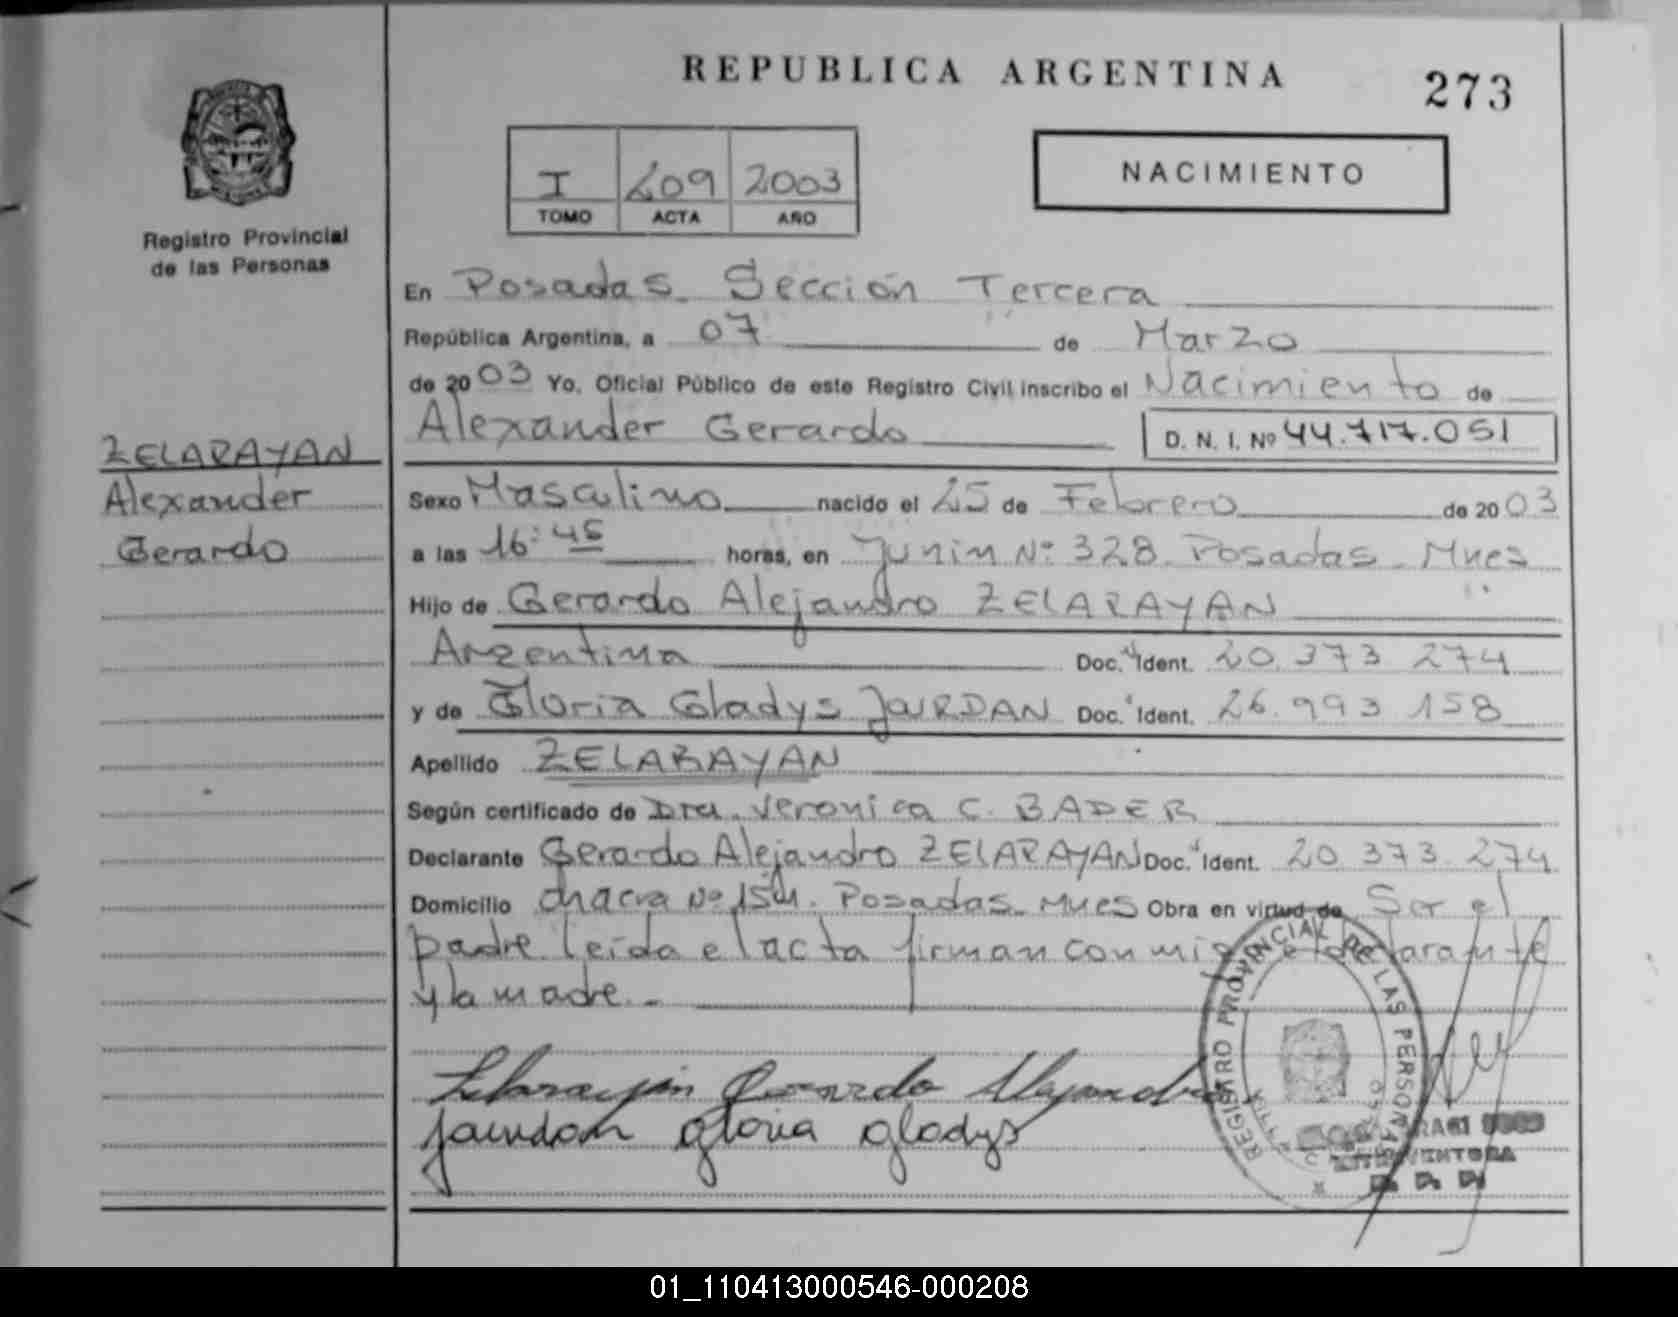 REPUBLICA ARGENTINA
273
NACIMIENTO
I 209 2003
TOMO ACTA AÑO
Registro Provincial
de las Personas
ZELARAYAN
Alexander
Gerardo
En Posadas. Sección Tercera
República Argentina, a 07 de Marzo
de 2003 Yo, Oficial Público de este Registro Civil inscribo el Nacimiento de
Alexander Gerardo D. N. I. Nº 44.717.051
Sexo Masculino nacido el 25 de Febrero de 2003
a las 16:45 horas, en Junin Nº 328. Posadas. Mnes
Hijo de Gerardo Alejandro ZELARAYAN
Argentina Doc. Ident. 20.373.274
y de Gloria Gladys JOURDAN Doc. Ident. 26.993.158
Apellido ZELARAYAN
Según certificado de Dra. Veronica C. BADER
Declarante Gerardo Alejandro ZELARAYAN Doc. Ident. 20.373.274
Domicilio chacra Nº 154. Posadas. Mnes Obra en virtud de Ser el
padre. leida el acta firman conmigo el declarante
y la madre.
Zelarayán Gerardo Alejandro
Jourdan gloria gladys
REGISTRO PROVINCIAL DE LAS PERSONAS
INTERVENTORA
01_110413000546-000208